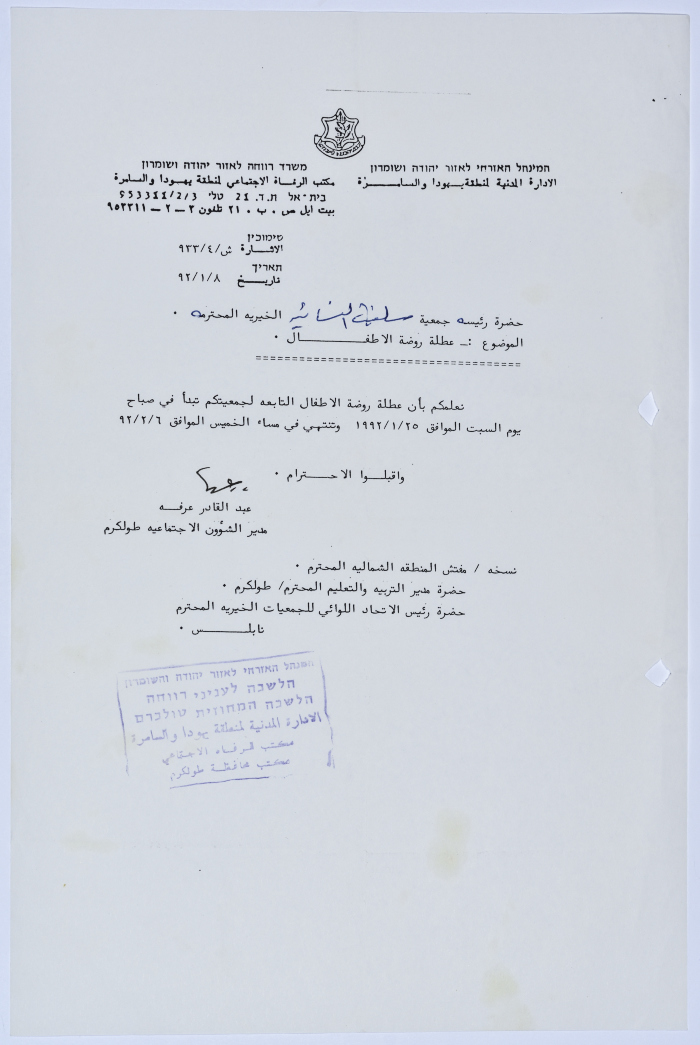 המינהל האזרחי לאזור יהודה ושומרון
الادارة المدنية لمنطقة يهودا والسامرة
משרד רווחה לאזור יהודה ושומרון
مكتب الرفاة الاجتماعي لمنطقة يهودا والسامرة
בית-אל ת.ד. 21 טל׳ 953311/2/3
بيت ايل ص . ب . ٢١ تلفون ٣ – ٢ – ٩٥٣٣١١
סימוכין
الاشارة ش/٩٣٣/٤
תאריך
تاريخ ٩٢/١/٨
حضرة رئيسه جمعية سلفيت النسائيه الخيريه المحترمه .
الموضوع :- عطلة روضة الاطفال .
نعلمكم بأن عطلة روضة الاطفال التابعه لجمعيتكم تبدأ في صباح
يوم السبت الموافق ١٩٩٢/١/٢٥ وتنتهي في مساء الخميس الموافق ٩٢/٢/٦
واقبلوا الاحترام .
عبد القادر عرفه
مدير الشؤون الاجتماعيه طولكرم
نسخه / مفتش المنطقه الشماليه المحترم .
حضرة مدير التربيه والتعليم المحترم/ طولكرم .
حضرة رئيس الاتحاد اللوائي للجمعيات الخيريه المحترم
نابلس .
המנהל האזרחי לאזור יהודה והשומרון
הלשכה לעניני רווחה
הלשכה המחוזית טולכרם
الادارة المدنية لمنطقة يهودا والسامرة
مكتب الرفاه الاجتماعي
مكتب محافظة طولكرم